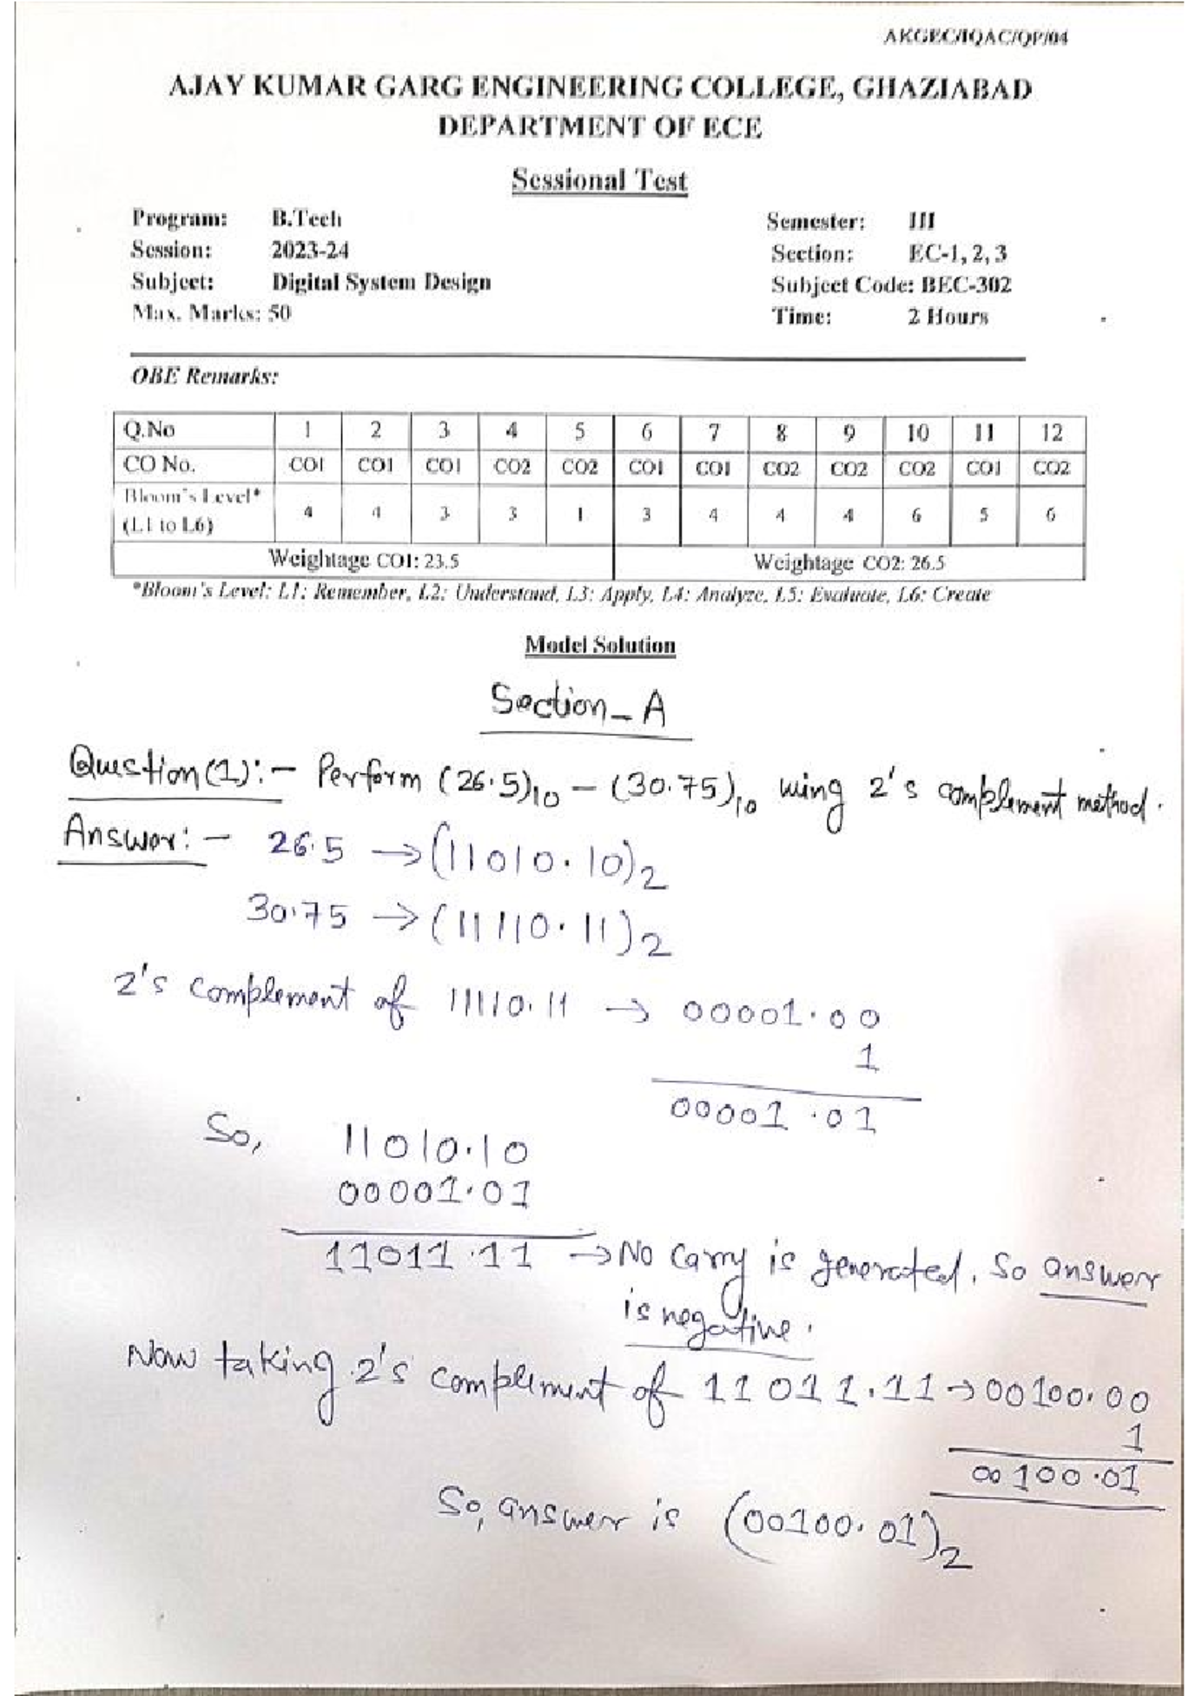 AKGEC/IQAC/QP/04
AJAY KUMAR GARG ENGINEERING COLLEGE, GHAZIABAD
DEPARTMENT OF ECE
Sessional Test
Program: B.Tech Semester: III
Session: 2023-24 Section: EC-1, 2, 3
Subject: Digital System Design Subject Code: BEC-302
Max. Marks: 50 Time: 2 Hours
OBE Remarks:
Q.No 1 2 3 4 5 6 7 8 9 10 11 12
CO No. CO1 CO1 CO1 CO2 CO2 CO1 CO1 CO2 CO2 CO2 CO1 CO2
Bloom's Level*
(L1 to L6) 4 4 3 3 1 3 4 4 4 6 5 6
Weightage CO1: 23.5 Weightage CO2: 26.5
*Bloom's Level: L1: Remember, L2: Understand, L3: Apply, L4: Analyze, L5: Evaluate, L6: Create
Model Solution
Section-A
Question(1):- Perform (26.5)10 - (30.75)10 using 2's complement method.
Answer:- 26.5 → (11010.10)2
30.75 → (11110.11)2
2's complement of 11110.11 → 00001.00
1
00001.01
So, 11010.10
00001.01
11011.11 → No carry is generated, so answer
is negative.
Now taking 2's complement of 11011.11 → 00100.00
1
00100.01
So, answer is (00100.01)2